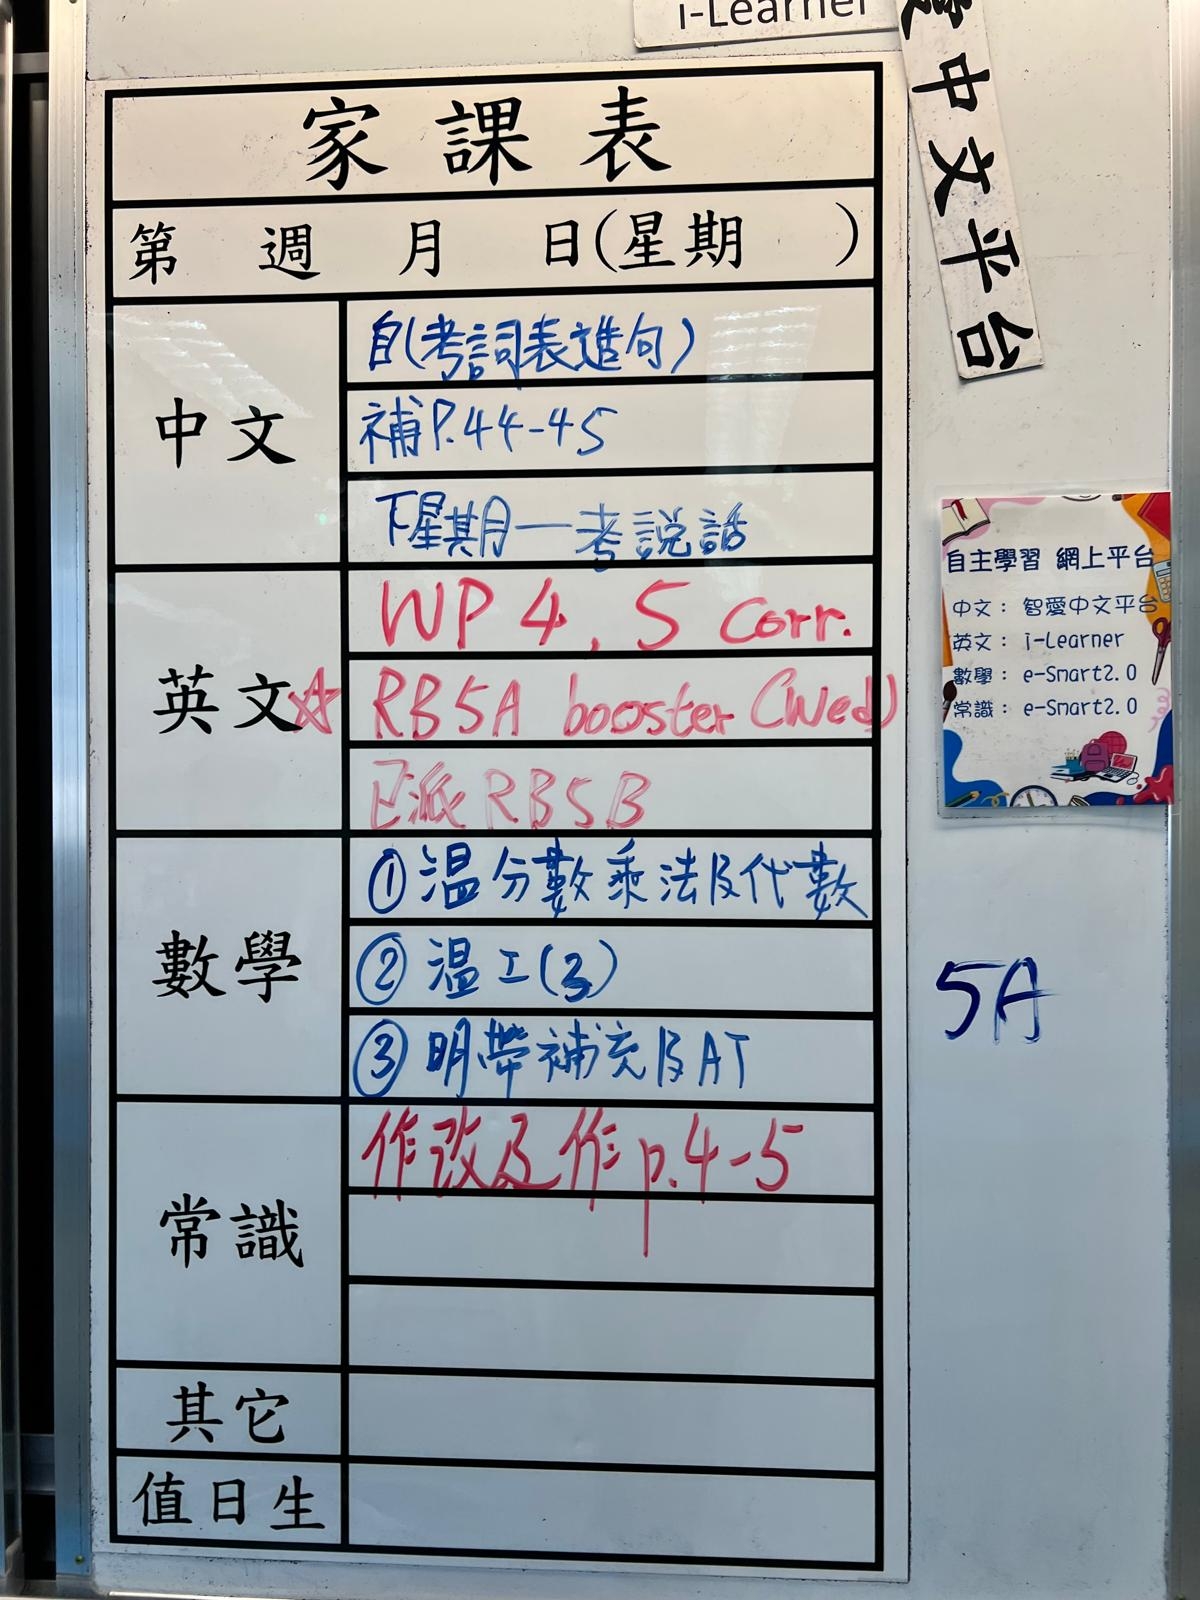 i-Learner
愛中文平台
家課表
第 週 月 日(星期 )
中文
自(考詞表造句)
補P.44-45
下星期一考說話
英文
WP 4, 5 Corr.
☆ RB5A booster (Wed)
已派RB5B
數學
①溫分數乘法及代數
②溫工(3)
③明帶補充及AT
常識
作改及作p.4-5
其它
值日生
自主學習 網上平台
中文： 智愛中文平台
英文： i-Learner
數學： e-Smart2.0
常識： e-Smart2.0
5A